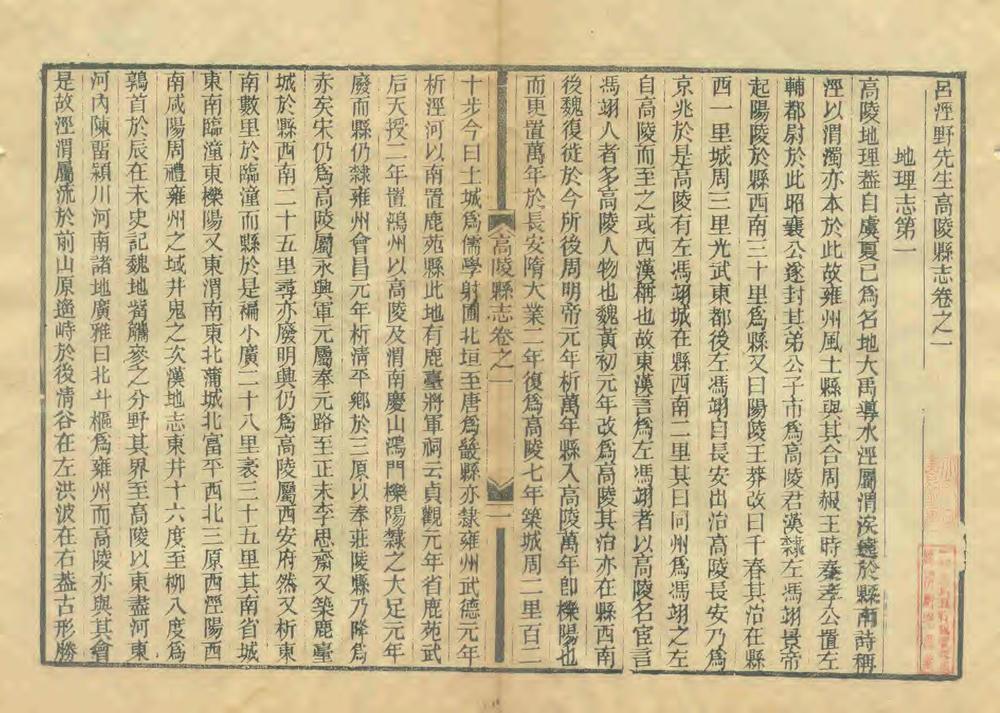 呂涇野先生高陵縣志卷之一
地理志第一
高陵地理葢自虞夏已爲名地大禹導水涇屬渭汭遶於縣南詩稱
涇以渭濁亦本於此故雍州風土縣與其合周赧王時秦孝公置左
輔都尉於此昭襄公遂封其弟公子市爲高陵君漢隸左馮翊景帝
起陽陵於縣西南三十里爲縣又曰陽陵王莽改曰千春其治在縣
西一里城周三里光武東都後左馮翊自長安出治高陵長安乃爲
京兆於是高陵有左馮翊城在縣西南二里其曰同州爲馮翊之左
自高陵而至之或西漢稱也故東漢言爲左馮翊者以高陵名宦言
馮翊人者多高陵人物也魏黃初元年改爲高陵其治亦在縣西南
後魏復徙於今所後周明帝元年析萬年縣入高陵萬年卽櫟陽也
而更置萬年於長安隋大業二年復爲高陵七年築城周二里百二
高陵縣志卷之一
一
十步今曰土城爲儒學射圃北垣至唐爲畿縣亦隸雍州武德元年
析涇河以南置鹿苑縣此地有鹿臺將軍祠云貞觀元年省鹿苑武
后天授二年置鴻州以高陵及渭南慶山鴻門櫟陽隸之大足元年
廢而縣仍隸雍州會昌元年析清平鄉於三原以奉莊陵縣乃降爲
赤矣宋仍爲高陵屬永興軍元屬奉元路至正末李思齋又築鹿臺
城於縣西南二十五里尋亦廢明興仍爲高陵屬西安府然又析東
南數里於臨潼而縣於是褊小廣二十八里袤三十五里其南省城
東南臨潼東櫟陽又東渭南東北蒲城北富平西北三原西涇陽西
南咸陽周禮雍州之域井鬼之次漢地志東井十六度至柳八度爲
鶉首於辰在未史記魏地觜觿參之分野其界至高陵以東盡河東
河內陳畱潁川河南諸地廣雅曰北斗樞爲雍州而高陵亦與其會
是故涇渭屬流於前山原邐峙於後清谷在左洪波在右葢古形勝